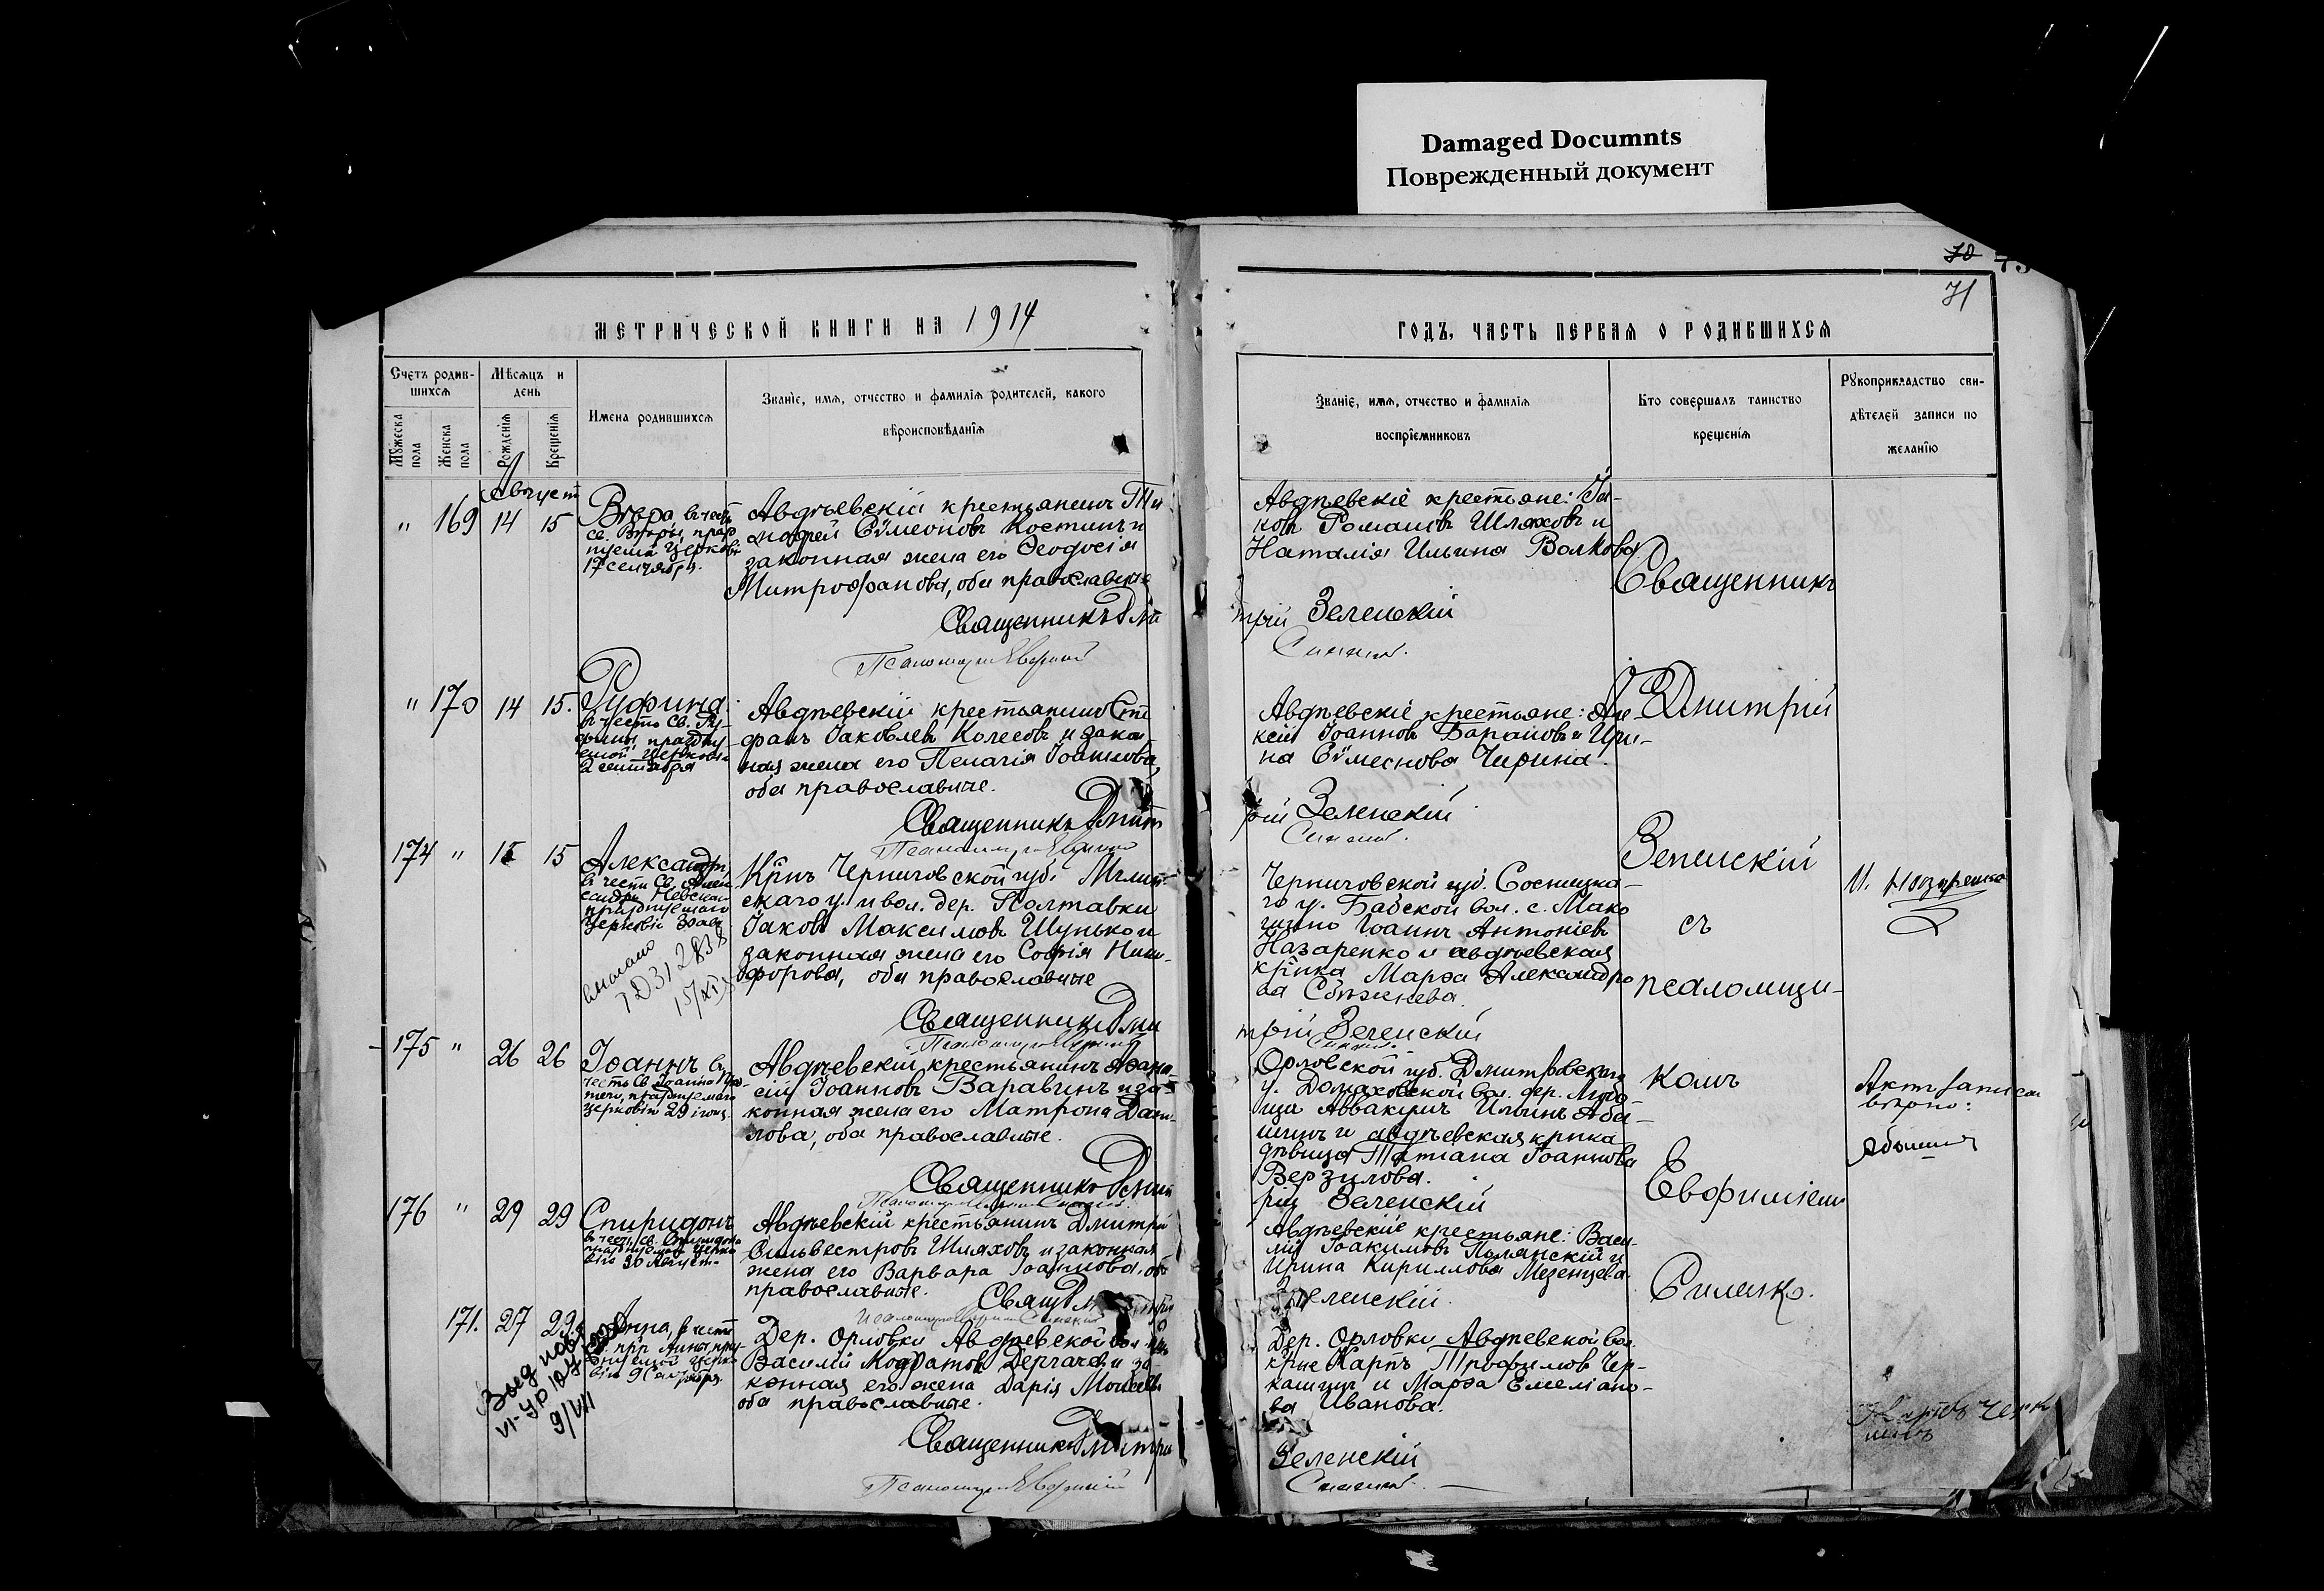 Damaged Documnts
Поврежденный документ
70
71
МЕТРИЧЕСКОЙ КНИГИ НА 1914
ГОДЪ, ЧАСТЬ ПЕРВАЯ О РОДИВШИХСЯ
Счетъ родив-
шихся
Мужеска пола
Женска пола
Мѣсяцъ и
день
Рожденія
Крещенія
Имена родившихся
Званіе, имя, отчество и фамилія родителей, какого
вѣроисповѣданія
Званіе, имя, отчество и фамилія
воспріемниковъ
Кто совершалъ таинство
крещенія
Рукоприкладство сви-
дѣтелей записи по
желанію
Августъ
" 169 14 15
Вѣра въ честь
св. Вѣры, празд
церковію
17 сентября.
Авдѣевскій крестьянинъ Ти
моѳей Сѷмеоновъ Костинъ и
законная жена его Ѳеодосія
Митрофанова, оба православные
Священникъ Дми
Авдѣевскіе крестьяне: Іа-
ковъ Романовъ Шляховъ и
Наталія Ильина Волкова
трій Зеленскій
" 170 14 15.
Руфина
въ честь св. Ру-
фины, праздну-
емой церковію
2 сентября
Авдѣевскій крестьянинъ Сте
фанъ Іаковлевъ Колесовъ и закон
ная жена его Пелагія Іоаннова,
оба православные.
Священникъ Дмит
Авдѣевскіе крестьяне: Але-
ксій Іоанновъ Барановъ и Ири-
на Сѷмеонова Чирина
рій Зеленскій
174 " 15 15
Александръ,
въ честь св. Алек
сандра Невскаго
празднуемаго
церковію 30 авг.
15/XI
Крнъ Черниговской губ. Мглин-
скаго у. и вол. дер. Полтавки
Іаковъ Максимовъ Шунько и
законная жена его Софія Ники-
форова, оба православные
Священникъ Дми
Черниговской губ. Сосницка-
го у. Бабской вол. с. Мако
шино Іоаннъ Антоніевъ
Назаренко и авдѣевская
крнка Марѳа Александро
ва
трій Зеленскій
И. Назаренко
175 " 26 26
Іоаннъ въ
честь св. Іоанна Пред-
течи, празднуемаго
церковію 29
Авдѣевскій крестьянинъ Аѳана-
сій Іоанновъ Варавинъ и за-
конная жена его Матрона Дани-
лова, оба православные.
Священникъ Дмит
Орловской губ. Дмитровскаго
у. Домаховской вол. дер.
Аввакумъ Ильинъ Аба-
шинъ и авдѣевская крнка
дѣвица Татіана Іоаннова
Верзилова.
рій Зеленскій
Актъ записан
вѣрно:
176 " 29 29
Спиридонъ
въ честь св. Спиридона
Авдѣевскій крестьянинъ Дмитрій
Сильвестровъ Шляховъ и законная
жена его Варвара Іоаннова, оба
православные.
Авдѣевскіе крестьяне: Васи-
лій Іоакимовъ Полянскій и
Ирина Кириллова Мезенцева
Зеленскій.
171. 27 29.
Анна, въ честь
9/VII
Дер. Орловки Авдѣевской вол
Василій Кодратовъ Дергачевъ и за
конная его жена Дарія Моисеева
оба православные.
Священникъ Дмитрій
Дер. Орловки Авдѣевской вол.
крне Карпъ Трофимовъ Чер-
кашинъ и Марѳа Емеліано-
ва Иванова.
Зеленскій
Священникъ
Димитрій
Зеленскій
съ
псаломщи-
комъ
Евфиміемъ
Карпъ Черк